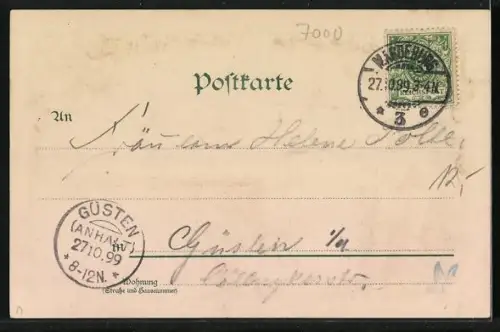 7000
MAGDEBURG
27.10.99.3-4N.
* 3 e
Postkarte
An
Fräulein Helene
12,-
GÜSTEN
(ANHALT)
27.10.99
* 8-12N. *
in Güsten i/A
Wohnung
(Straße und Hausnummer)